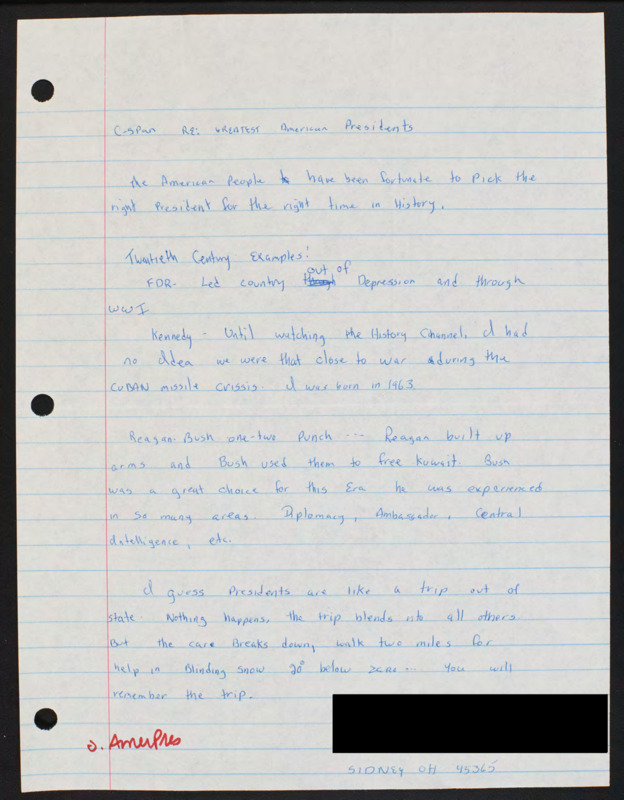 C-SPAN RE: GREATEST American Presidents
The American People have been fortunate to pick the
right President for the right time in History.
Twentieth Century Examples:
out of
FDR- Led country Depression and through
WWI
Kennedy - Until watching the History Channel, I had
no Idea we were that close to war during the
CUBAN missile crissis. I was born in 1963.
Reagan-Bush one-two Punch --- Reagan built up
arms and Bush used them to free Kuwait. Bush
was a great choice for this Era he was experienced
in so many areas. Diplomacy, Ambassador, Central
Intelligence, etc.
I guess Presidents are like a trip out of
state. Nothing happens, the trip blends into all others.
But the care Breaks down, walk two miles for
help in Blinding snow 20° below zero... You will
remember the trip.
AmerPres
SIDNEY OH 45365